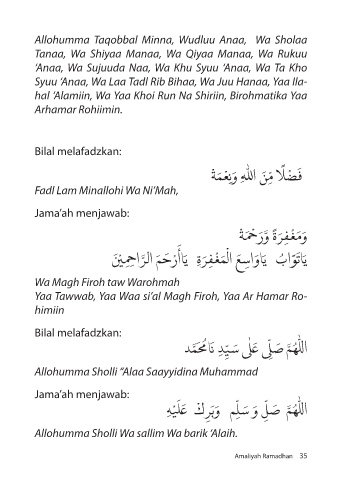 Allohumma Taqobbal Minna, Wudluu Anaa, Wa Sholaa
Tanaa, Wa Shiyaa Manaa, Wa Qiyaa Manaa, Wa Rukuu
‘Anaa, Wa Sujuuda Naa, Wa Khu Syuu ‘Anaa, Wa Ta Kho
Syuu ‘Anaa, Wa Laa Tadl Rib Bihaa, Wa Juu Hanaa, Yaa Ila-
hal ‘Alamiin, Wa Yaa Khoi Run Na Shiriin, Birohmatika Yaa
Arhamar Rohiimin.
Bilal melafadzkan:
فَضْلًا مِّنَ اللهِ وَنِعْمَةْ
Fadl Lam Minallohi Wa Ni’Mah,
Jama’ah menjawab:
وَمَغْفِرَةً وَّرَحْمَةْ
يَاتَوَّابُ يَاوَاسِعَ الْمَغْفِرَةِ يَاأَرْحَمَ الرَّاحِمِيْنَ
Wa Magh Firoh taw Warohmah
Yaa Tawwab, Yaa Waa si’al Magh Firoh, Yaa Ar Hamar Ro-
himiin
Bilal melafadzkan:
اللّٰهُمَّ صَلِّى عَلٰى سَيِّدِ نَامُحَمَّد
Allohumma Sholli “Alaa Saayyidina Muhammad
Jama’ah menjawab:
اللّٰهُمَّ صَلِّ وَسَلِّم وَبَرِكْ عَلَيْهِ
Allohumma Sholli Wa sallim Wa barik ‘Alaih.
Amaliyah Ramadhan 35